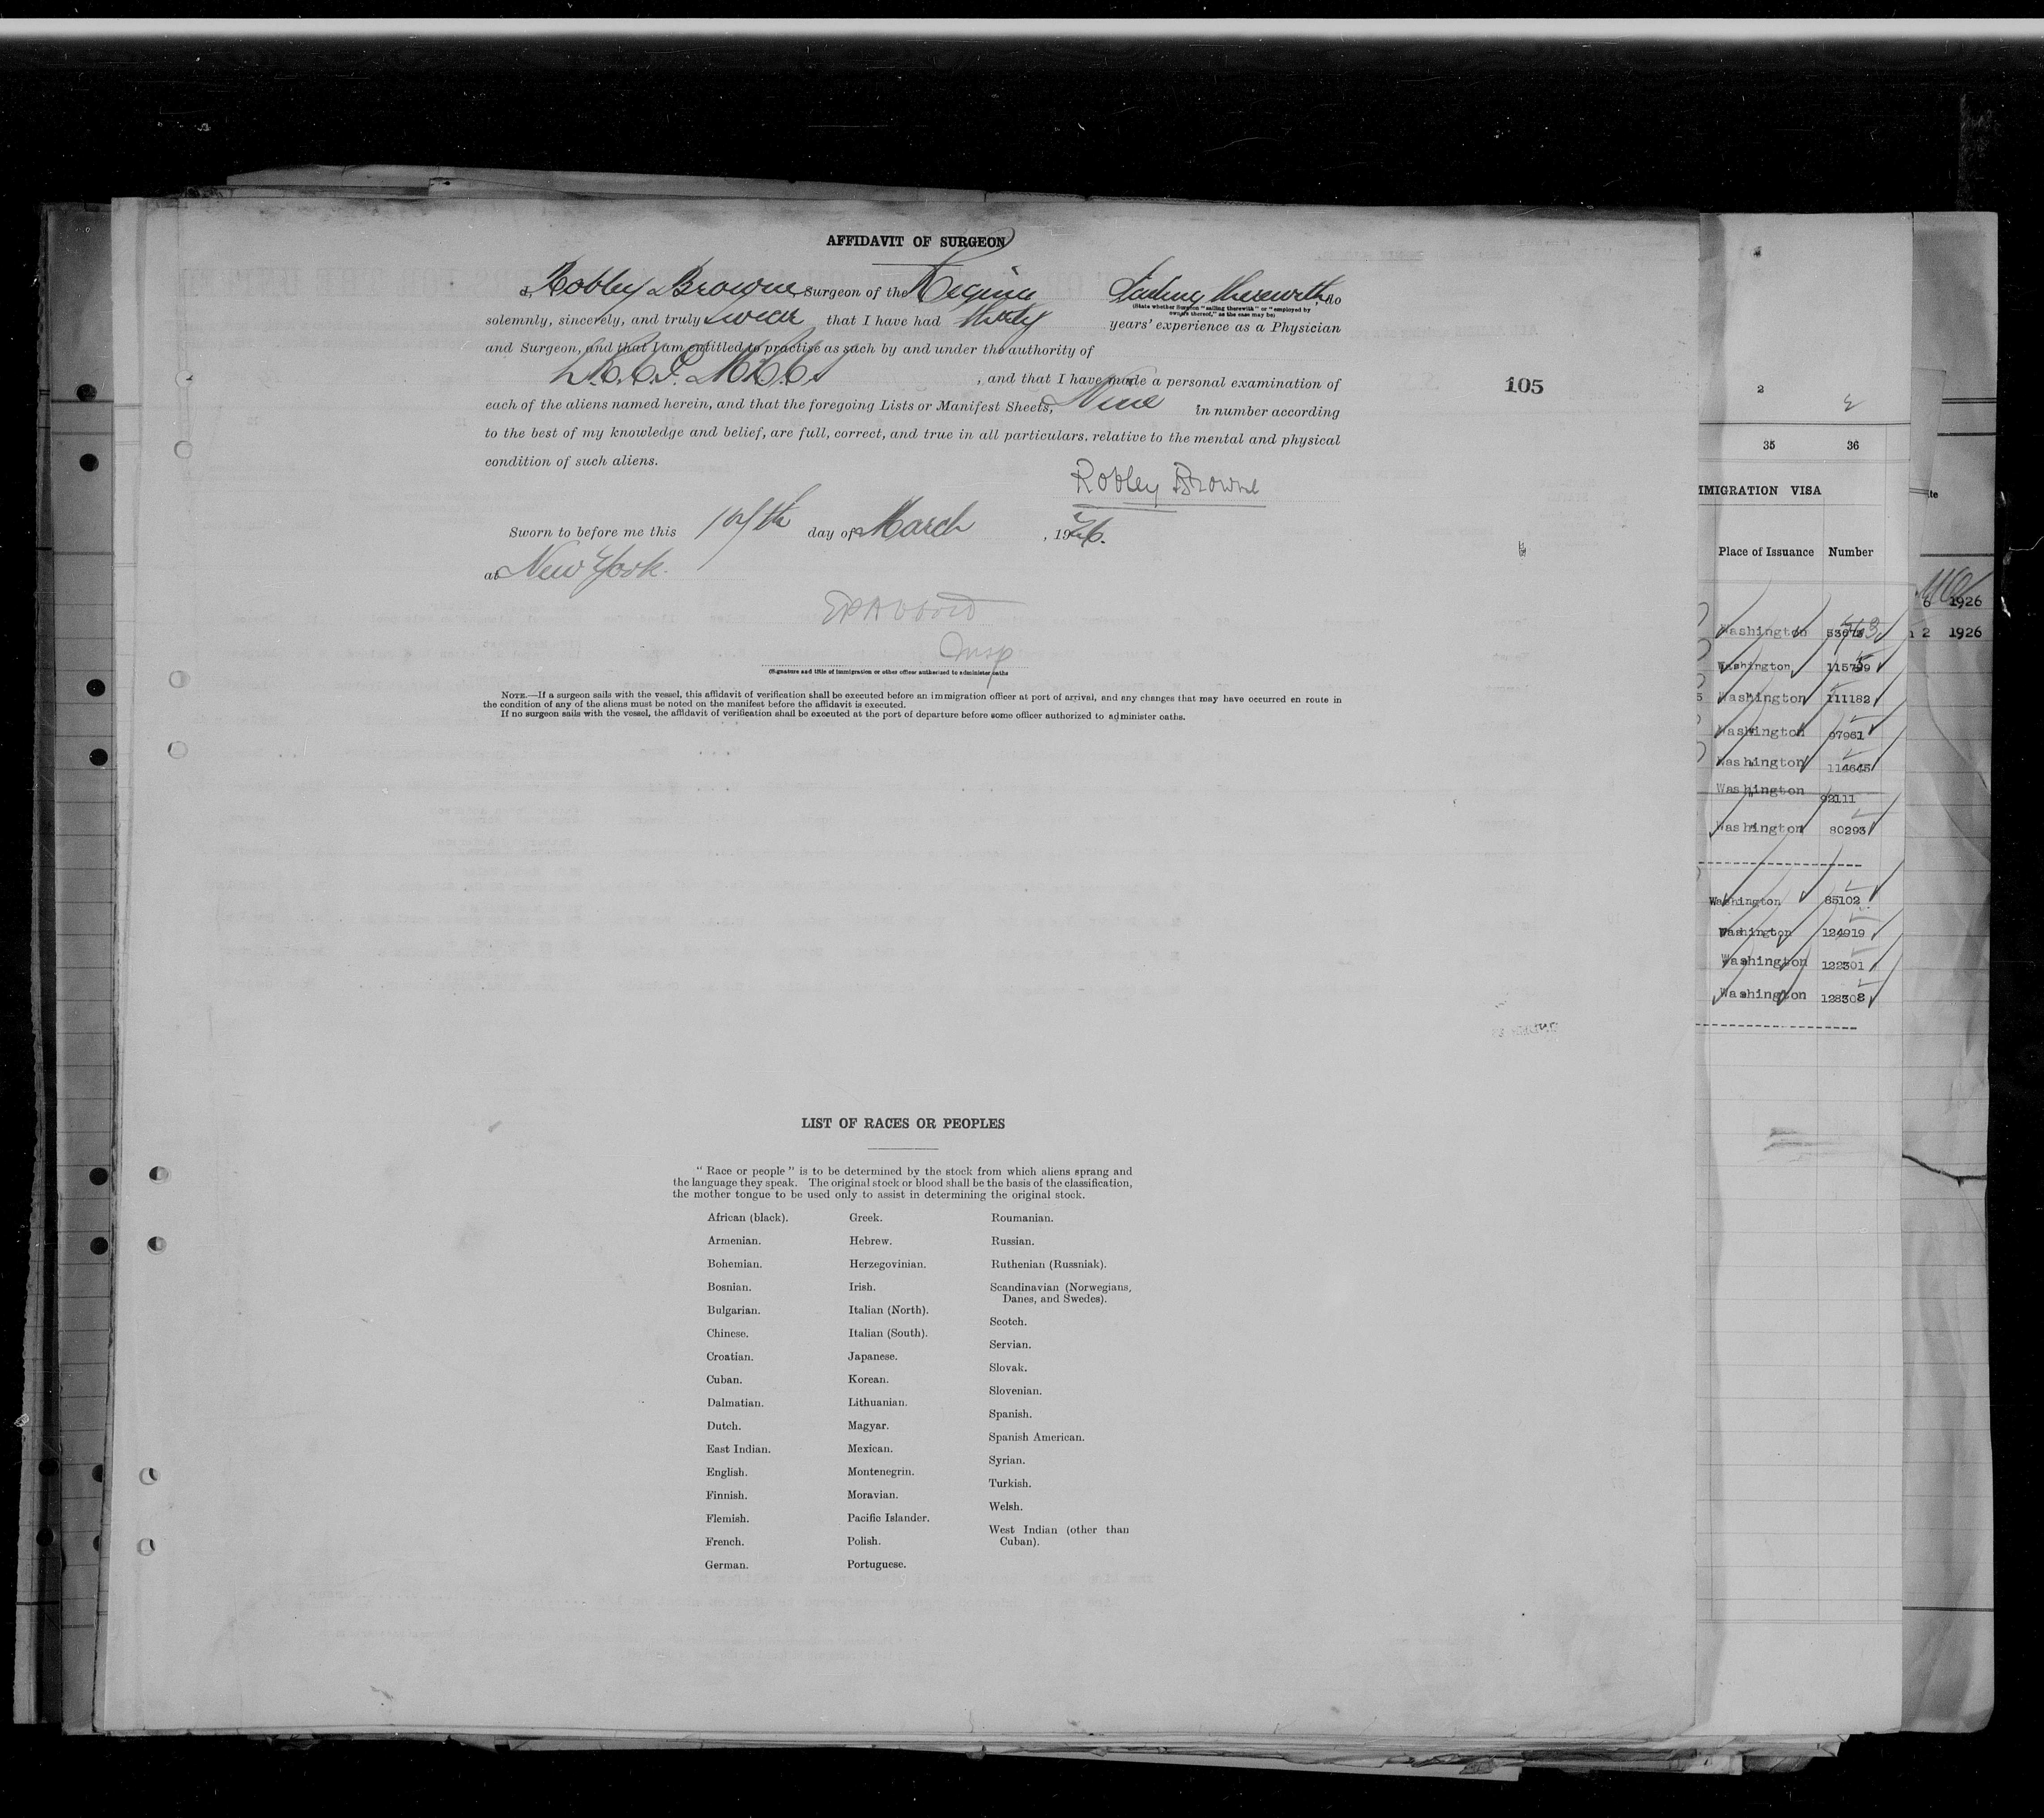 AFFIDAVIT OF SURGEON
I, Robley Browne, Surgeon of the Regina Sailing therewith, do
(State whether Surgeon "sailing therewith" or "employed by
owners thereof," as the case may be)
solemnly, sincerely, and truly swear that I have had thirty years' experience as a Physician
and Surgeon, and that I am entitled to practise as such by and under the authority of
, and that I have made a personal examination of
each of the aliens named herein, and that the foregoing Lists or Manifest Sheets, Nine in number according
to the best of my knowledge and belief, are full, correct, and true in all particulars, relative to the mental and physical
condition of such aliens.
Robley Browne
Sworn to before me this day of March, 1926.
at New York.
Insp
(Signature and title of immigration or other officer authorized to administer oaths
NOTE.—If a surgeon sails with the vessel, this affidavit of verification shall be executed before an immigration officer at port of arrival, and any changes that may have occurred en route in
the condition of any of the aliens must be noted on the manifest before the affidavit is executed.
If no surgeon sails with the vessel, the affidavit of verification shall be executed at the port of departure before some officer authorized to administer oaths.
105
LIST OF RACES OR PEOPLES
"Race or people" is to be determined by the stock from which aliens sprang and
the language they speak. The original stock or blood shall be the basis of the classification,
the mother tongue to be used only to assist in determining the original stock.
African (black).
Armenian.
Bohemian.
Bosnian.
Bulgarian.
Chinese.
Croatian.
Cuban.
Dalmatian.
Dutch.
East Indian.
English.
Finnish.
Flemish.
French.
German.
Greek.
Hebrew.
Herzegovinian.
Irish.
Italian (North).
Italian (South).
Japanese.
Korean.
Lithuanian.
Magyar.
Mexican.
Montenegrin.
Moravian.
Pacific Islander.
Polish.
Portuguese.
Roumanian.
Russian.
Ruthenian (Russniak).
Scandinavian (Norwegians,
Danes, and Swedes).
Scotch.
Servian.
Slovak.
Slovenian.
Spanish.
Spanish American.
Syrian.
Turkish.
Welsh.
West Indian (other than
Cuban).
2
35 36
IMMIGRATION VISA
Place of Issuance Number
Washington
Washington
Washington 111182
Washington 97961
Washington 114645
Washington 92111
Washington 80293
Washington 85102
Washington 124919
Washington 122301
Washington 128308
6 1926
2 1926